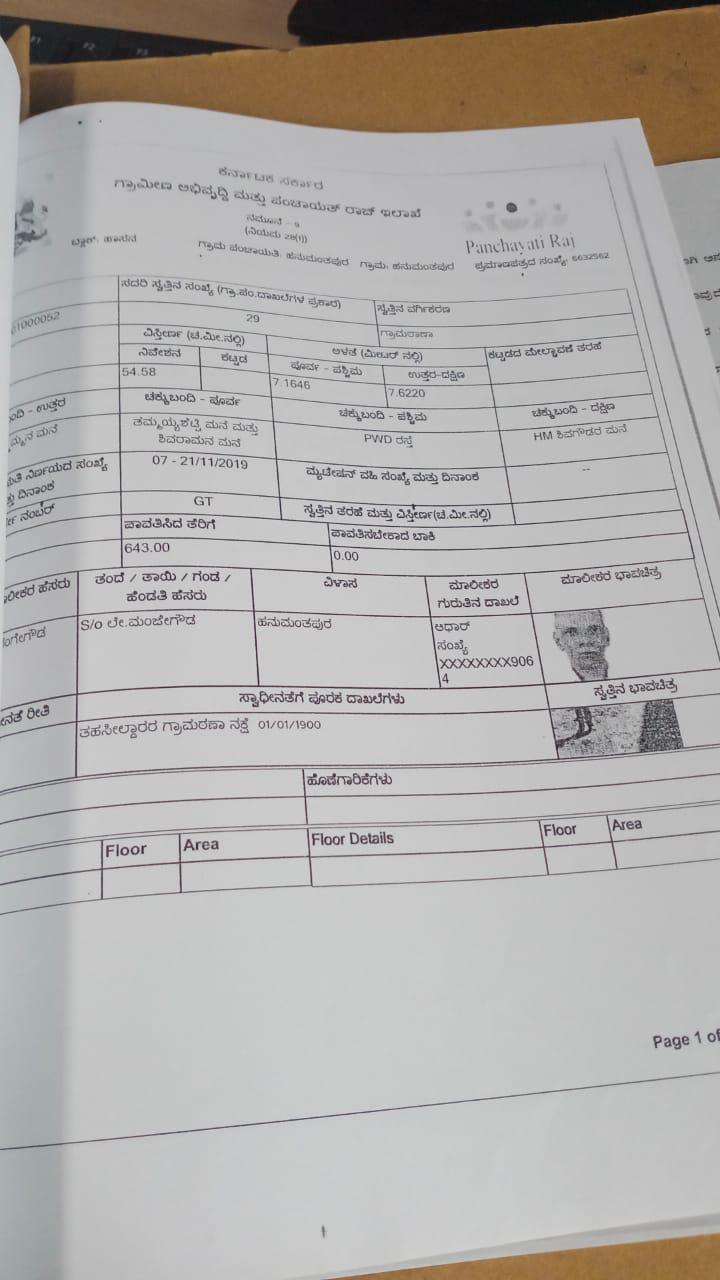 ಕರ್ನಾಟಕ ಸರ್ಕಾರ
ಗ್ರಾಮೀಣ ಅಭಿವೃದ್ಧಿ ಮತ್ತು ಪಂಚಾಯತ್ ರಾಜ್ ಇಲಾಖೆ
ನಮೂನೆ - 9
(ನಿಯಮ 28(1))
Panchayati Raj
ಬ್ಲಾಕ್: ಹಾಸನ ಗ್ರಾಮ ಪಂಚಾಯತಿ: ಹನುಮಂತಪುರ ಗ್ರಾಮ: ಹನುಮಂತಪುರ ಪ್ರಮಾಣಪತ್ರದ ಸಂಖ್ಯೆ: 6632562
ಸದರಿ ಸ್ವತ್ತಿನ ಸಂಖ್ಯೆ (ಗ್ರಾ.ಪಂ.ದಾಖಲೆಗಳ ಪ್ರಕಾರ) ಸ್ವತ್ತಿನ ವರ್ಗೀಕರಣ
01000052 29 ಗ್ರಾಮಠಾಣಾ
ವಿಸ್ತೀರ್ಣ (ಚ.ಮೀ.ನಲ್ಲಿ) ಅಳತೆ (ಮೀಟರ್ ನಲ್ಲಿ) ಕಟ್ಟಡದ ಮೇಲ್ಛಾವಣಿ ತರಹೆ
ನಿವೇಶನ ಕಟ್ಟಡ ಪೂರ್ವ - ಪಶ್ಚಿಮ ಉತ್ತರ-ದಕ್ಷಿಣ
54.58 7.1646 7.6220
ಬಂದಿ - ಉತ್ತರ ಚಕ್ಕುಬಂದಿ - ಪೂರ್ವ ಚಕ್ಕುಬಂದಿ - ಪಶ್ಚಿಮ ಚಕ್ಕುಬಂದಿ - ದಕ್ಷಿಣ
ಮನೆ ತಮ್ಮಯ್ಯಶೆಟ್ಟಿ ಮನೆ ಮತ್ತು PWD ರಸ್ತೆ HM ಶಿವಗೌಡರ ಮನೆ
ಶಿವರಾಮನ ಮನೆ
ನಿರ್ಣಯದ ಸಂಖ್ಯೆ 07 - 21/11/2019 ಮ್ಯುಟೇಷನ್ ವಹಿ ಸಂಖ್ಯೆ ಮತ್ತು ದಿನಾಂಕ --
ದಿನಾಂಕ
ನಂಬರ್ GT ಸ್ವತ್ತಿನ ತರಹೆ ಮತ್ತು ವಿಸ್ತೀರ್ಣ(ಚ.ಮೀ.ನಲ್ಲಿ)
ಪಾವತಿಸಿದ ತೆರಿಗೆ ಪಾವತಿಸಬೇಕಾದ ಬಾಕಿ
643.00 0.00
ಹೆಸರು ತಂದೆ / ತಾಯಿ / ಗಂಡ / ವಿಳಾಸ ಮಾಲೀಕರ ಮಾಲೀಕರ ಭಾವಚಿತ್ರ
ಹೆಂಡತಿ ಹೆಸರು ಗುರುತಿನ ದಾಖಲೆ
S/o ಲೇ.ಮಂಜೇಗೌಡ ಹನುಮಂತಪುರ ಆಧಾರ್
ಸಂಖ್ಯೆ
XXXXXXXX906
4
ರೀತಿ ಸ್ವಾಧೀನತೆಗೆ ಪೂರಕ ದಾಖಲೆಗಳು ಸ್ವತ್ತಿನ ಭಾವಚಿತ್ರ
ತಹಸೀಲ್ದಾರರ ಗ್ರಾಮಠಾಣಾ ನಕ್ಷೆ 01/01/1900
ಹೊಣೆಗಾರಿಕೆಗಳು
Floor Area Floor Details Floor Area
Page 1 of